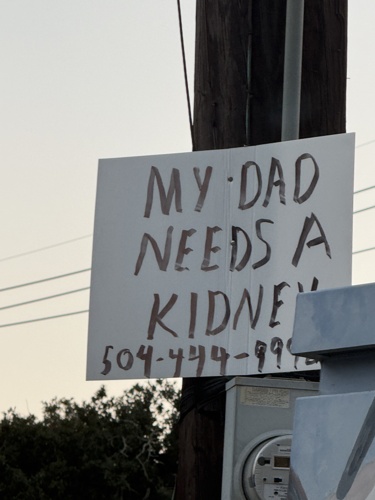 MY DAD
NEEDS A
KIDNEY
504-444-999